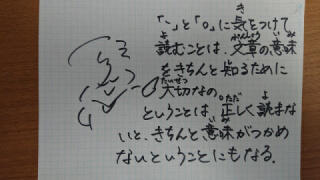 「、」と「。」に気をつけて
読むことは、文章の意味
をきちんと知るために
大切なの。
ということは、正しく読まな
いと、きちんと意味がつかめ
ないということにもなる。